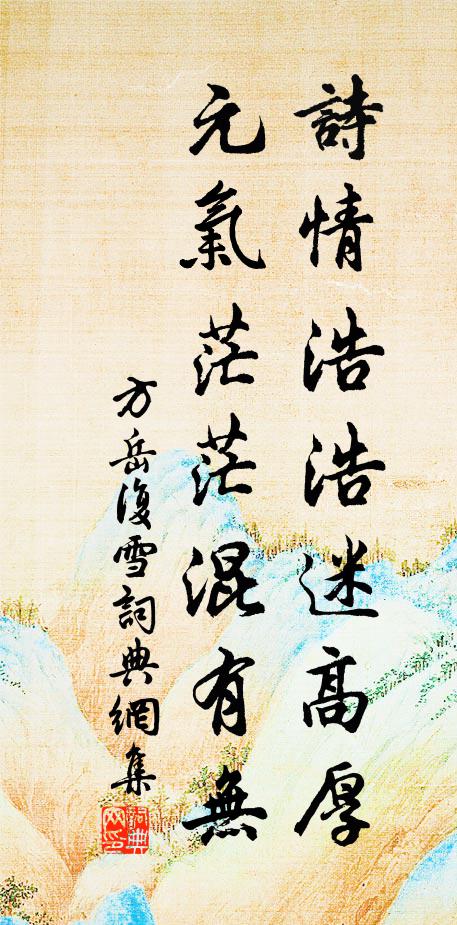 詩情浩浩迷高厚
元氣茫茫混有無
方岳復雪詞典網集
詞典
网印